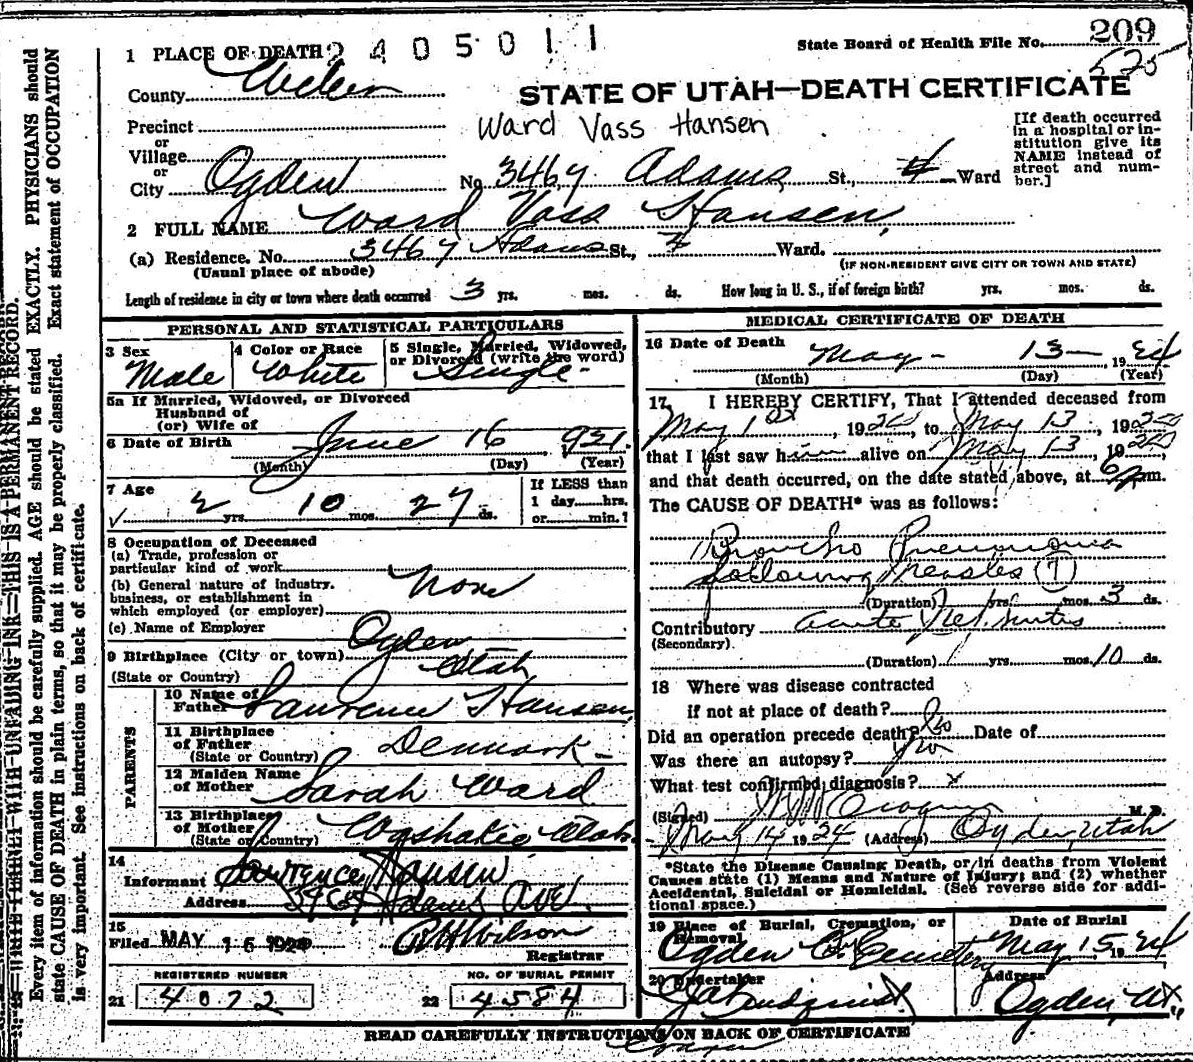 209
1 PLACE OF DEATH 2405011 State Board of Health File No.
525
County Weber
STATE OF UTAH—DEATH CERTIFICATE
Ward Vass Hansen
[If death occurred in a hospital or institution give its NAME instead of street and number.]
Precinct
or
Village
or
City Ogden No. 3467 Adams St., 4 Ward
2 FULL NAME Ward Vass Hansen,
(a) Residence. No. 3467 Adams St., Ward.
(Usual place of abode) (IF NON-RESIDENT GIVE CITY OR TOWN AND STATE)
Length of residence in city or town where death occurred 3 yrs. mos. ds. How long in U. S., if of foreign birth? yrs. mos. ds.
PERSONAL AND STATISTICAL PARTICULARS
3 Sex Male
4 Color or Race White
5 Single, Married, Widowed, or Divorced (write the word) Single
5a If Married, Widowed, or Divorced
Husband of
(or) Wife of
6 Date of Birth June 16 1921.
(Month) (Day) (Year)
7 Age 2 yrs. 10 mos. 27 ds.
If LESS than
1 day hrs.
or min.?
8 Occupation of Deceased
(a) Trade, profession or
particular kind of work
(b) General nature of industry,
business, or establishment in
which employed (or employer)
None
(c) Name of Employer
9 Birthplace (City or town) Ogden
(State or Country) Utah
PARENTS
10 Name of Father Lawrence Hansen
11 Birthplace of Father (State or Country) Denmark
12 Maiden Name of Mother Sarah Ward
13 Birthplace of Mother (State or Country) Washakie Utah
14
Informant Lawrence Hansen
Address 3467 Adams Ave.
15
Filed MAY 15 1924 Wilson
Registrar
REGISTERED NUMBER NO. OF BURIAL PERMIT
21 4072 22 4584
MEDICAL CERTIFICATE OF DEATH
16 Date of Death May 13 1924
(Month) (Day) (Year)
17 I HEREBY CERTIFY, That I attended deceased from
May 1st, 192, to May 13, 192
that I last saw him alive on May 13, 192,
and that death occurred, on the date stated above, at 6 pm.
The CAUSE OF DEATH* was as follows:
Broncho Pneumonia
following Measles (?)
(Duration) yrs. mos. 3 ds.
Contributory Acute Nephritis
(Secondary)
(Duration) yrs. mos. 10 ds.
18 Where was disease contracted
if not at place of death?
Did an operation precede death? No Date of
Was there an autopsy? No
What test confirmed diagnosis? x
(Signed) M. D.
May 14 1924 (Address) Ogden, Utah
*State the Disease Causing Death, or in deaths from Violent
Causes state (1) Means and Nature of Injury; and (2) whether
Accidental, Suicidal or Homicidal. (See reverse side for additional space.)
19 Place of Burial, Cremation, or Removal Ogden City Cemetery
Date of Burial May 15, 1924
20 Undertaker Lindquist
Address Ogden, Ut.
READ CAREFULLY INSTRUCTIONS ON BACK OF CERTIFICATE
WRITE PLAINLY WITH UNFADING INK—THIS IS A PERMANENT RECORD.
Every item of information should be carefully supplied. AGE should be stated EXACTLY. PHYSICIANS should
state CAUSE OF DEATH in plain terms, so that it may be properly classified. Exact statement of OCCUPATION
is very important. See instructions on back of certificate.